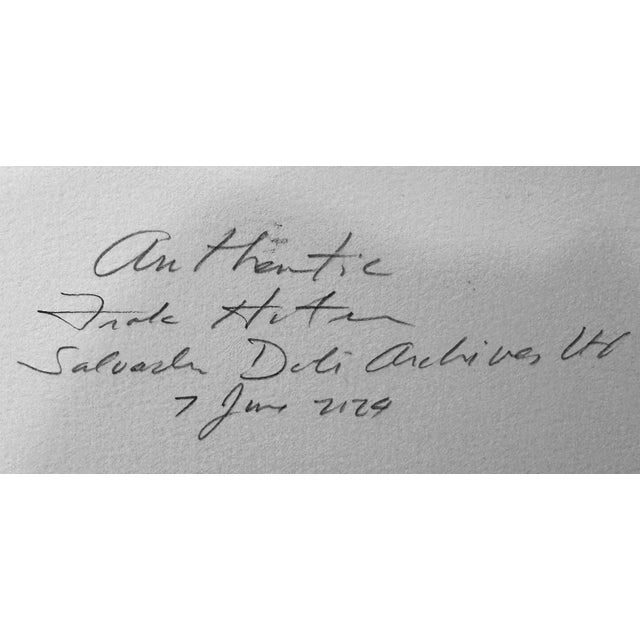 Authentic
Frank Hunter
Salvador Dali Archives Ltd
7 June 2024